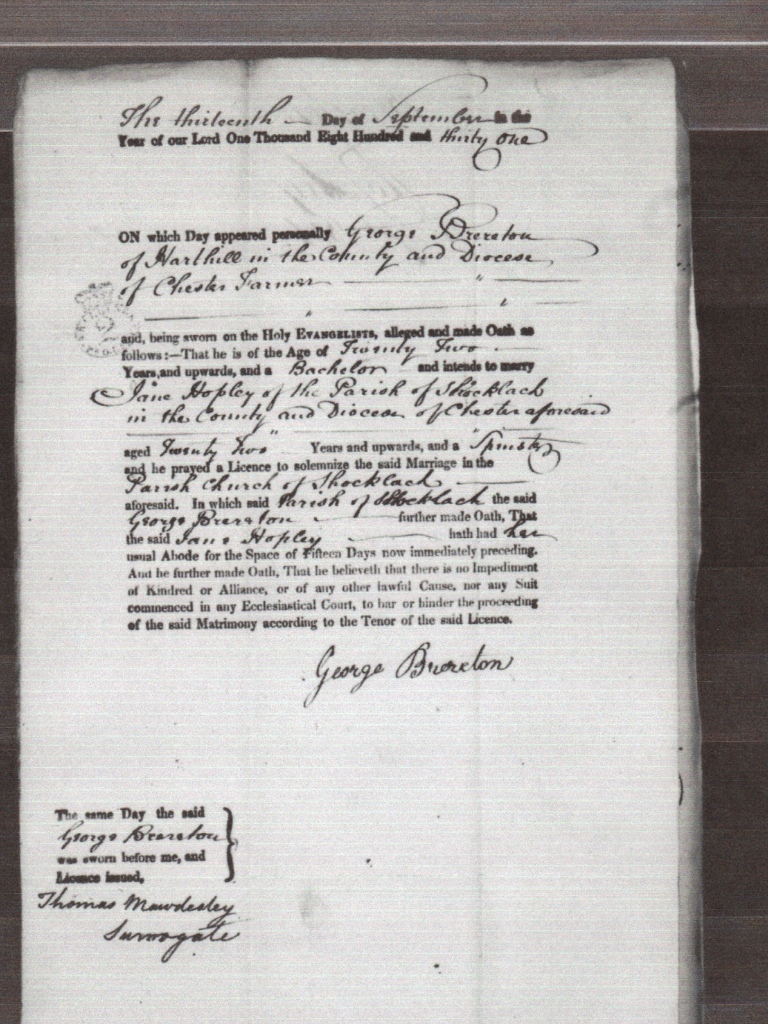 The thirteenth Day of September in the
Year of our Lord One Thousand Eight Hundred and thirty one
ON which Day appeared personally George Brereton
of Harthill in the County and Diocese
of Chester Farmer
and, being sworn on the Holy EVANGELISTS, alleged and made Oath as
follows:—That he is of the Age of Twenty Two
Years, and upwards, and a Bachelor and intends to marry
Jane Hopley of the Parish of Shocklach
in the County and Diocese of Chester aforesaid
aged Twenty Two Years and upwards, and a Spinster
and he prayed a Licence to solemnize the said Marriage in the
Parish Church of Shocklach
aforesaid. In which said Parish of Shocklach the said
George Brereton further made Oath, That
the said Jane Hopley hath had her
usual Abode for the Space of Fifteen Days now immediately preceding.
And he further made Oath, That he believeth that there is no Impediment
of Kindred or Alliance, or of any other lawful Cause, nor any Suit
commenced in any Ecclesiastical Court, to bar or hinder the proceeding
of the said Matrimony according to the Tenor of the said Licence.
George Brereton
The same Day the said
George Brereton
was sworn before me, and
Licence issued,
Thomas Mawdesley
Surrogate